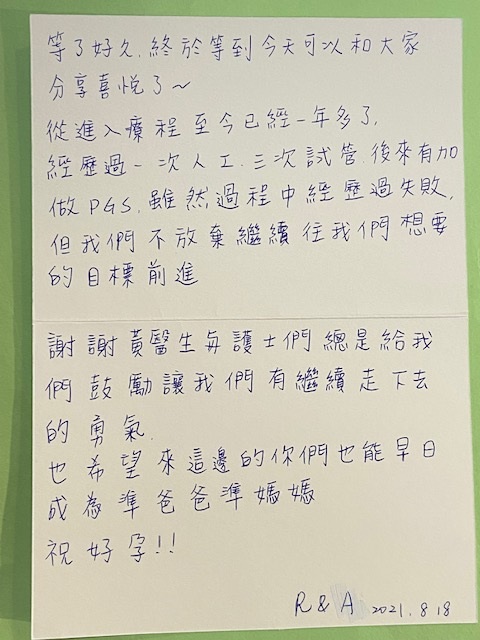 等了好久.終於等到今天可以和大家
分享喜悅了~
從進入療程至今已經一年多了,
經歷過一次人工.三次試管.後來有加
做PGS.雖然過程中經歷過失敗,
但我們不放棄繼續往我們想要
的目標前進
謝謝黃醫生每護士們總是給我
們鼓勵讓我們有繼續走下去
的勇氣.
也希望來這邊的你們也能早日
成為準爸爸準媽媽
祝好孕!!
R & A 2021.8.18